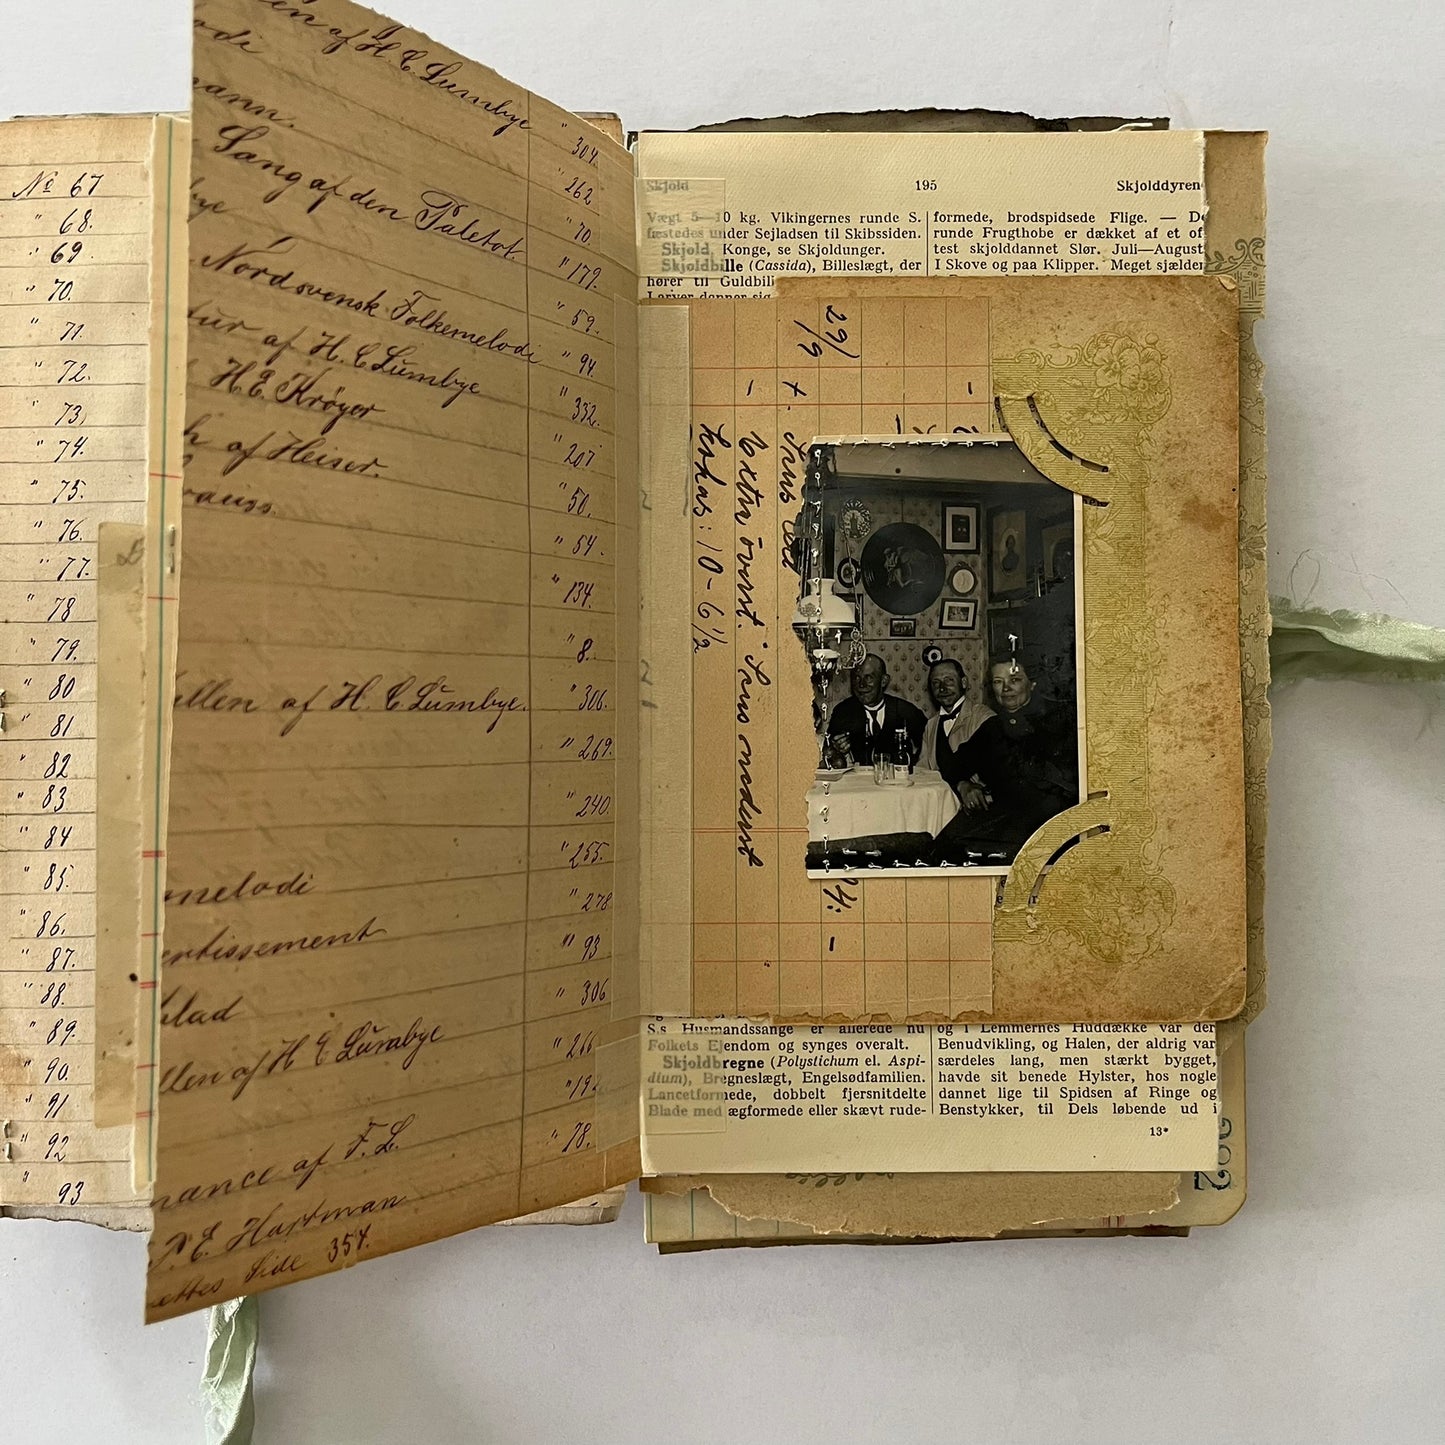 № 67
" 68.
" 69
" 70.
" 71.
" 72.
" 73,
" 74.
" 75.
" 76.
" 77.
" 78
" 79.
" 80
" 81
" 82
" 83.
" 84
" 85.
" 86.
" 87.
" 88.
" 89.
" 90.
" 91
" 92
" 93
en af H. C. Lumbye " 304.
odi " 262
mann. " 70.
Sang af den Paletot " 179.
bye " 59.
Nordsvensk Folkemelodi " 94.
tur af H. C. Lumbye " 332.
H. E. Krøyer " 207
h af Heiser. " 50.
rauss. " 54.
" 134.
" 8.
illen af H. C. Lumbye. " 306.
" 269.
" 240.
" 255.
melodi " 278
ertissement " 93
blad " 306
llen af H C Lumbye " 266
" 194
mance af F. L. " 78.
P. E. Hartman
ettes Side 354.
Skjold 195 Skjolddyren
Vægt 5—10 kg. Vikingernes runde S.
fæstedes under Sejladsen til Skibssiden.
Skjold, Konge, se Skjoldunger.
Skjoldbille (Cassida), Billeslægt, der
hører til Guldbill
Larver danner sig
formede, brodspidsede Flige. — De
runde Frugthobe er dækket af et of
test skjolddannet Slør. Juli—August
I Skove og paa Klipper. Meget sjælden
29/9
Extra överst. Sirus onederst
Lokas: 10 - 6 1/2
S.s Husmandssange er allerede nu
Folkets Ejendom og synges overalt.
Skjoldbregne (Polystichum el. Aspi-
dium), Bregneslægt, Engelsødfamilien.
Lancetformede, dobbelt fjersnitdelte
Blade med ægformede eller skævt rude-
og i Lemmernes Huddække var der
Benudvikling, og Halen, der aldrig var
særdeles lang, men stærkt bygget,
havde sit benede Hylster, hos nogle
dannet lige til Spidsen af Ringe og
Benstykker, til Dels løbende ud i
13*